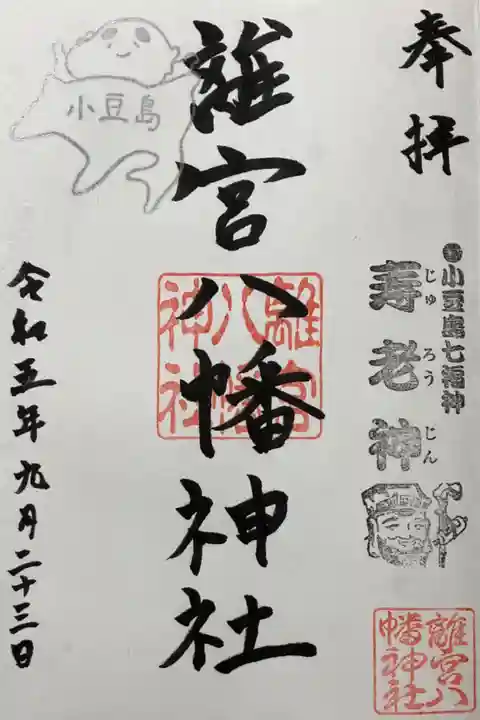 奉拝
●小豆島七福神
寿老神
じゅ ろう じん
離宮八幡神社
離宮八
幡神社
離宮
八幡
神社
小豆島
令和五年九月二十三日